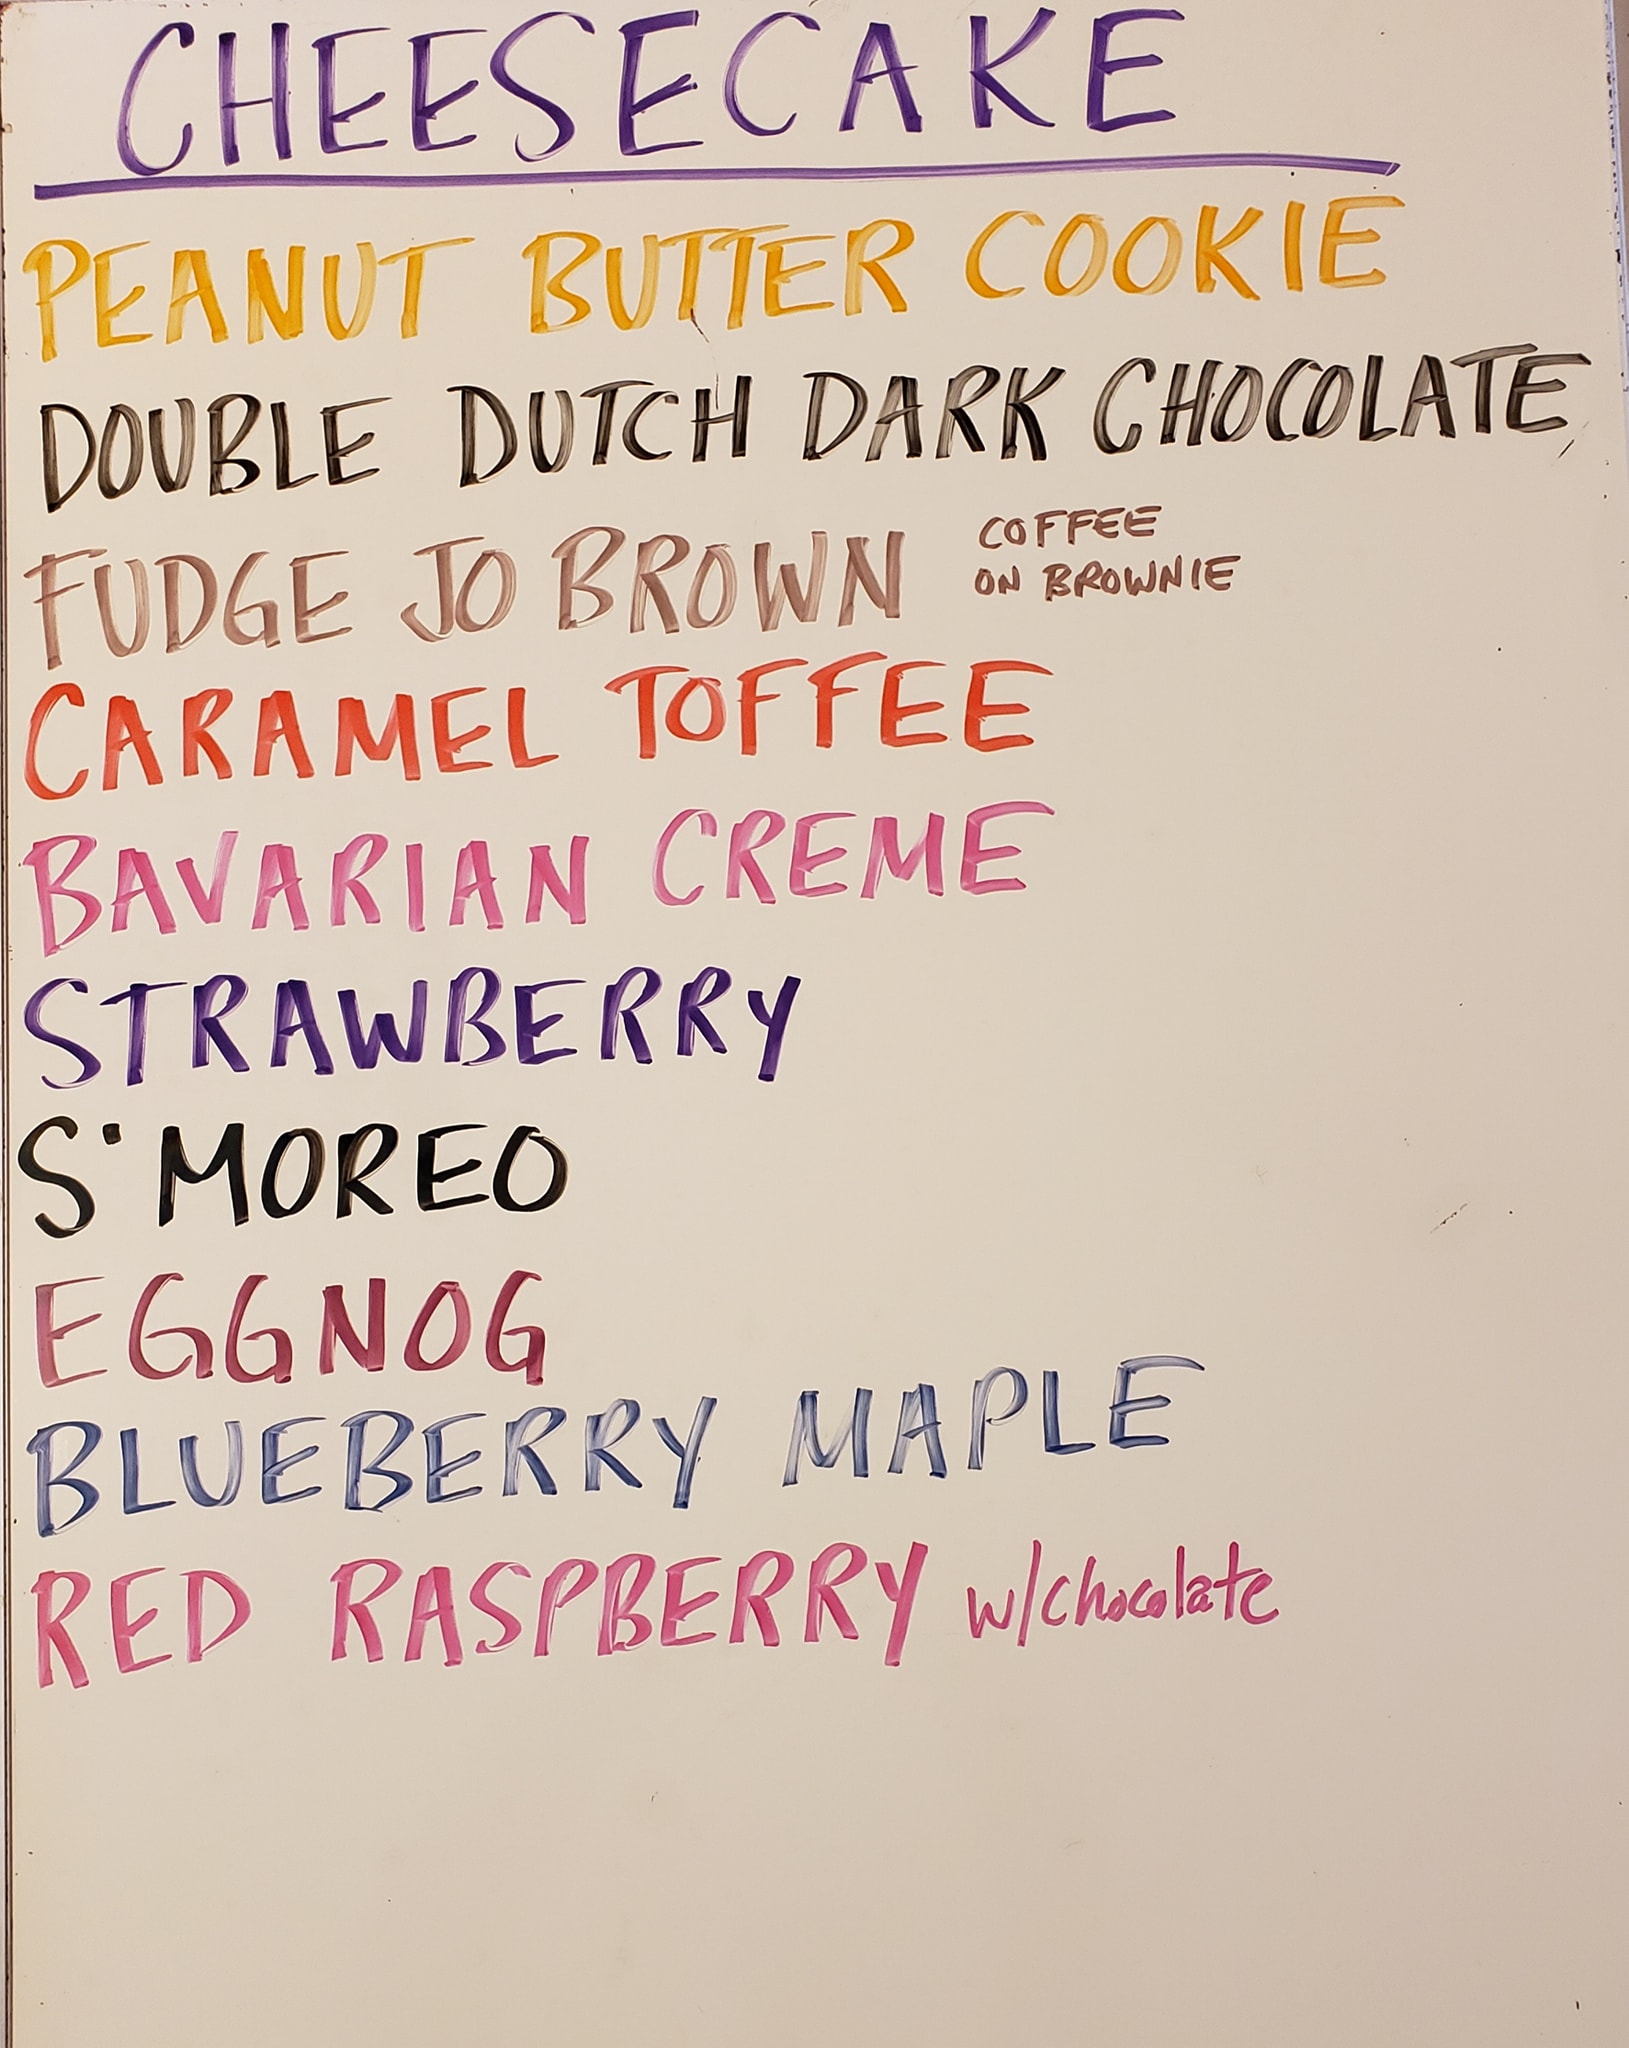 CHEESECAKE
PEANUT BUTTER COOKIE
DOUBLE DUTCH DARK CHOCOLATE
FUDGE JO BROWN COFFEE
ON BROWNIE
CARAMEL TOFFEE
BAVARIAN CREME
STRAWBERRY
S'MOREO
EGGNOG
BLUEBERRY MAPLE
RED RASPBERRY w/chocolate